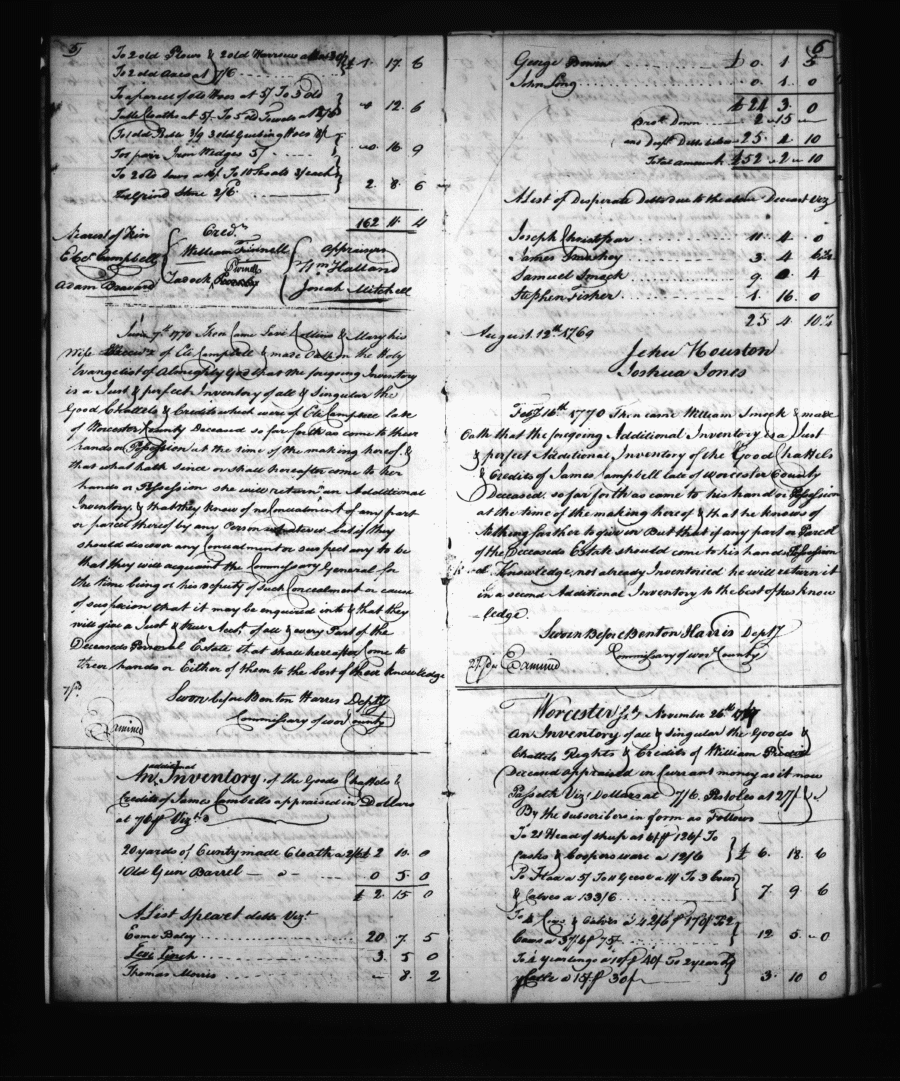 5
To 2 old Plows & 2 old Harrows
To 2 old axes at 7/6 £ 1. 17 8
To a parcel of old Hoes at 5/ To 3 old
Table Cloaths at 5/ To 5 old Towels at 12 6
To 1 old 3/9 3 old Grubing Hoes
To 5 pair Iron Wedges 5/ 0 16 9
To 2 old sows To 10 Shoats 2/ each
To Grind Stone 2/6 2. 8. 6
162 11. 4
Nearest of Kin
Campbell
Adam Bravard
Cred.rs
William Tunnell
Zadock Purnell
Appraisers
Wm Holland
Josiah Mitchell
June 7th 1770 Then Came Levi Collins & Mary his
Wife of Eli Campbell & made Oath on the Holy
Evangelist of Almighty God that the foregoing Inventory
is a Just & perfect Inventory of all & Singular the
Good Chattels & Credits which were of Eli Campbell late
of Worcester County Deceased so far forth as come to their
hands or Possession at the time of the making hereof &
that what hath since or shall hereafter come to her
hands or Possession she will return in an Additional
Inventory & that they know of no Concealment of any part
or parcel thereof by any Person but if they
should discover any Concealment or suspect any to be
that they will acquaint the Commissary General for
the time being or his Deputy of such Concealment or cause
of suspicion that it may be enquired into & that they
will give a Just & true Acct. of all & every Part of the
Deceaseds Personal Estate that shall hereafter Come to
their hands or Either of them to the best of their knowledge
Sworn before Benton Harris Depty
Commissary of wor County
Examined
additional
An Inventory of the Goods Chattels &
Credits of James Cambells appraised in Dollars
at 7/6 Vizt.
20 yards of Cuntry made Cloath a 2/6 £ 2 10. 0
1 Old Gun Barrel 0 5. 0
£ 2. 15 0
A List Speart debts Vizt.
Esme Baley 20 7. 5
Levi Linch 3. 5 0
Thomas Morris - 8. 2
6
George Bowin £ 0. 1 5
John Long 0. 1. 0
£ 24 3. 0
Brot. Down 2 15
and Despt. Debts below 25. 4. 10
Total amount £52 2 10
A List of Desperate Debts due to the above Deceast Viz
Joseph Christopar 11. 4. 0
James Smashey 3. 4 6½
Samuel Smack 9. 0 4
Stephen Fisher 1. 16. 0
25 4. 10½
August 12th 1769
Jehu Houston
Joshua Jones
Feby 16th 1770 Then came William Smock & made
Oath that the foregoing Additional Inventory is a Just
& perfect Additional Inventory of the Good Chattels
& Credits of James Campbell late of Worcester County
Deceased, so far forth as came to his hand or Possession
at the time of the making hereof & that he knows of
nothing further to give in But that if any part or Parcel
of the Deceaseds Estate should come to his hands Possession
or Knowledge, not already Inventoried he will return it
in a second Additional Inventory to the best of his know
-ledge.
Sworn Before Benton Harris Depty
Commissary of wor County
Examined
Worcester Ss. November 26th
An Inventory of all & singular the Goods &
Chattels Rights & Credits of William
Deceased appraised in Currant money as it now
Passeth Vizt. Dollars at 7/6. Pistoles at 27/ &
By the subscribers in form as Follows
To 21 Head of sheep at 6/ 126/ To
Casks & Coopers ware a 12/6 £ 6. 18. 6
To Flax a 5/ To 11 Geese a 1/ To 3 Cows
& Calves a 133/6 7. 9 6
To 4 Cows & Calves a 42/6 170/ To 2
Cows a 37/6 75/ 12 5. 0
To 4 yearlings a 10/ 40/ To 2 year old
Cattle a 15/ 30/ 3. 10 0